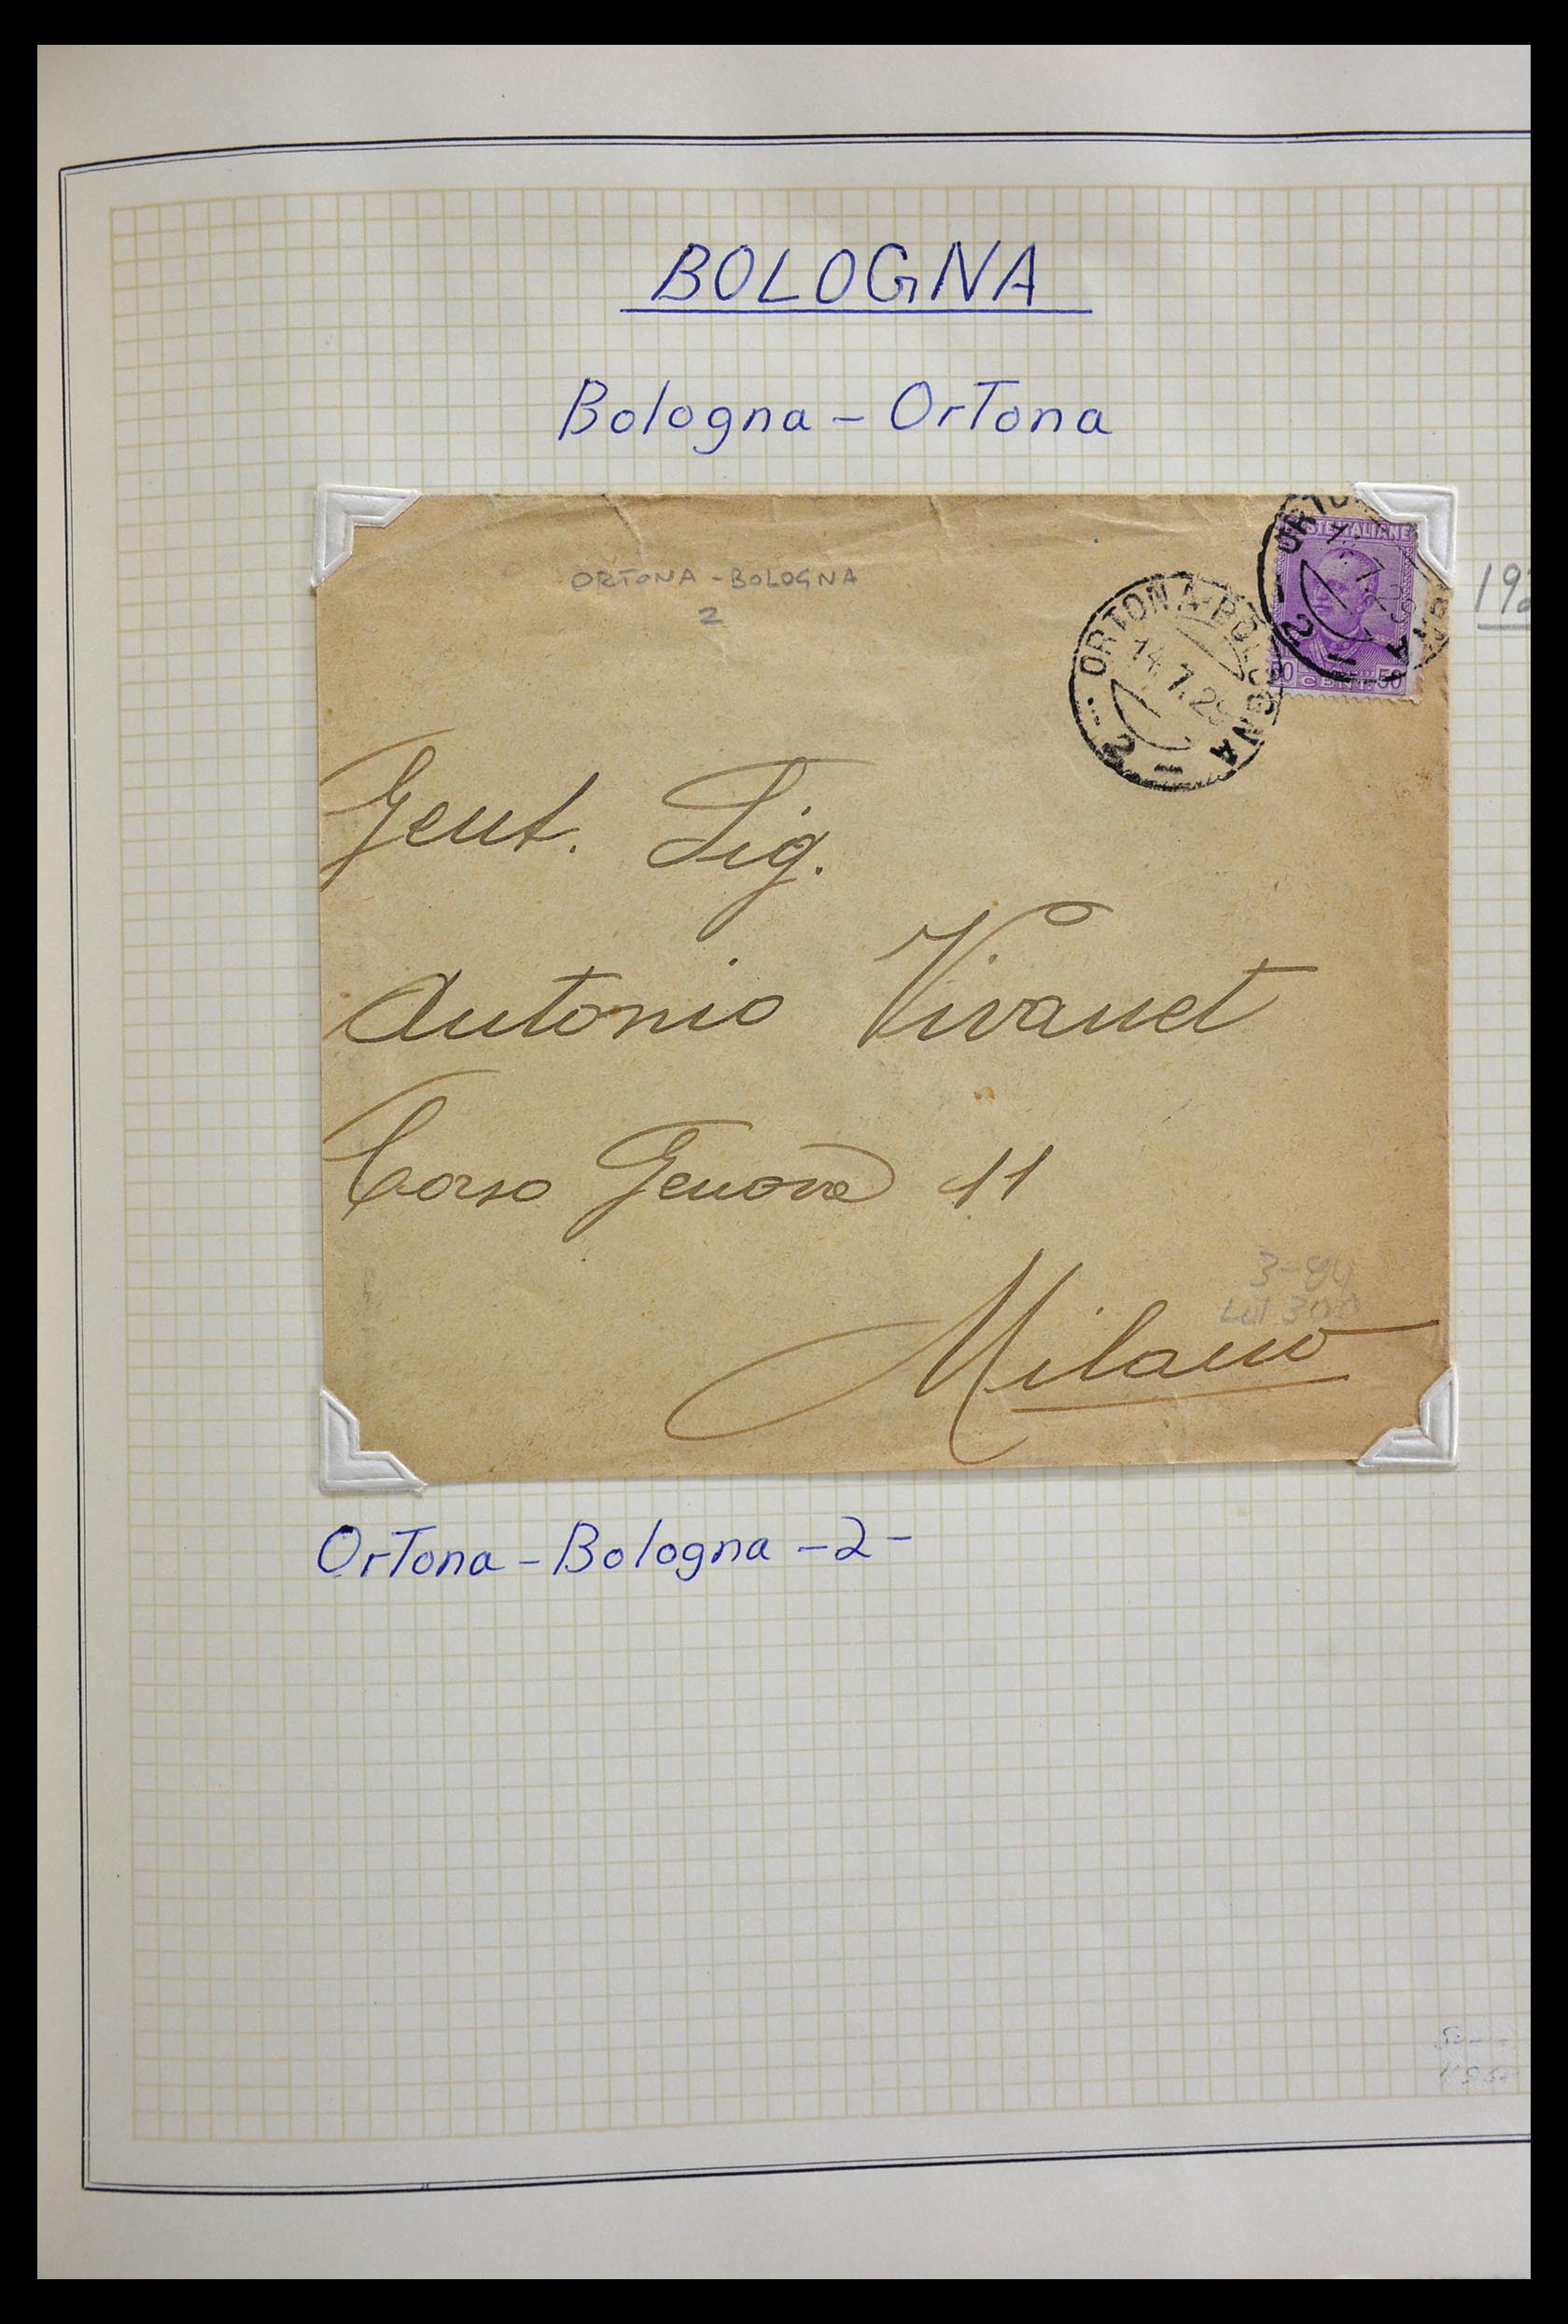 BOLOGNA
Bologna - OrTona
ORTONA - BOLOGNA
2
POSTE ITALIANE
50 CENT. 50
ORTONA-BOLOGNA
14.7.29
2
Gent. Sig.
Antonio Vivanet
Corso Genova 11
Milano
3-84
Lot 300
OrTona - Bologna - 2 -